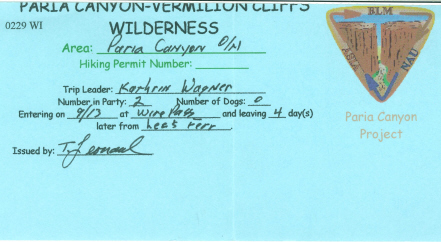 PARIA CANYON-VERMILION CLIFFS
0229 WI
WILDERNESS
BLM
ASLD
NAU
Area: Paria Canyon O/N
Hiking Permit Number:
Trip Leader: Kathrin Wagner
Number in Party: 2 Number of Dogs: 0
Entering on 9/13 at Wire Pass and leaving 4 day(s)
later from Lees Ferr
Paria Canyon
Project
Issued by: